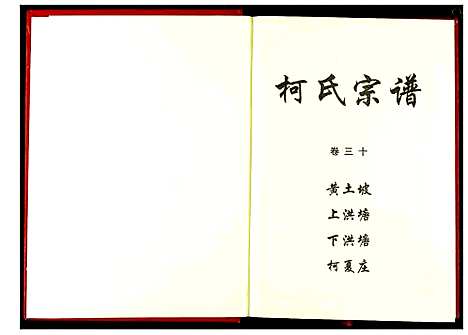 柯氏宗谱
卷三十
黄土坡
上洪塘
下洪塘
柯夏庄